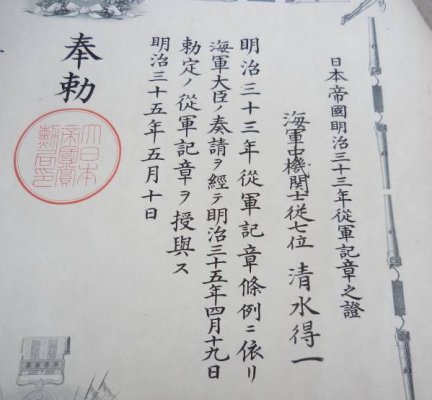 日本帝國明治三十三年從軍記章之證
海軍中機関士從七位 清水得一
明治三十三年從軍記章條例ニ依リ
海軍大臣ノ奏請ヲ經テ明治三十五年四月十九日
勅定ノ從軍記章ヲ授與ス
明治三十五年五月十日
奉勅
大日本
帝國賞
勲局印